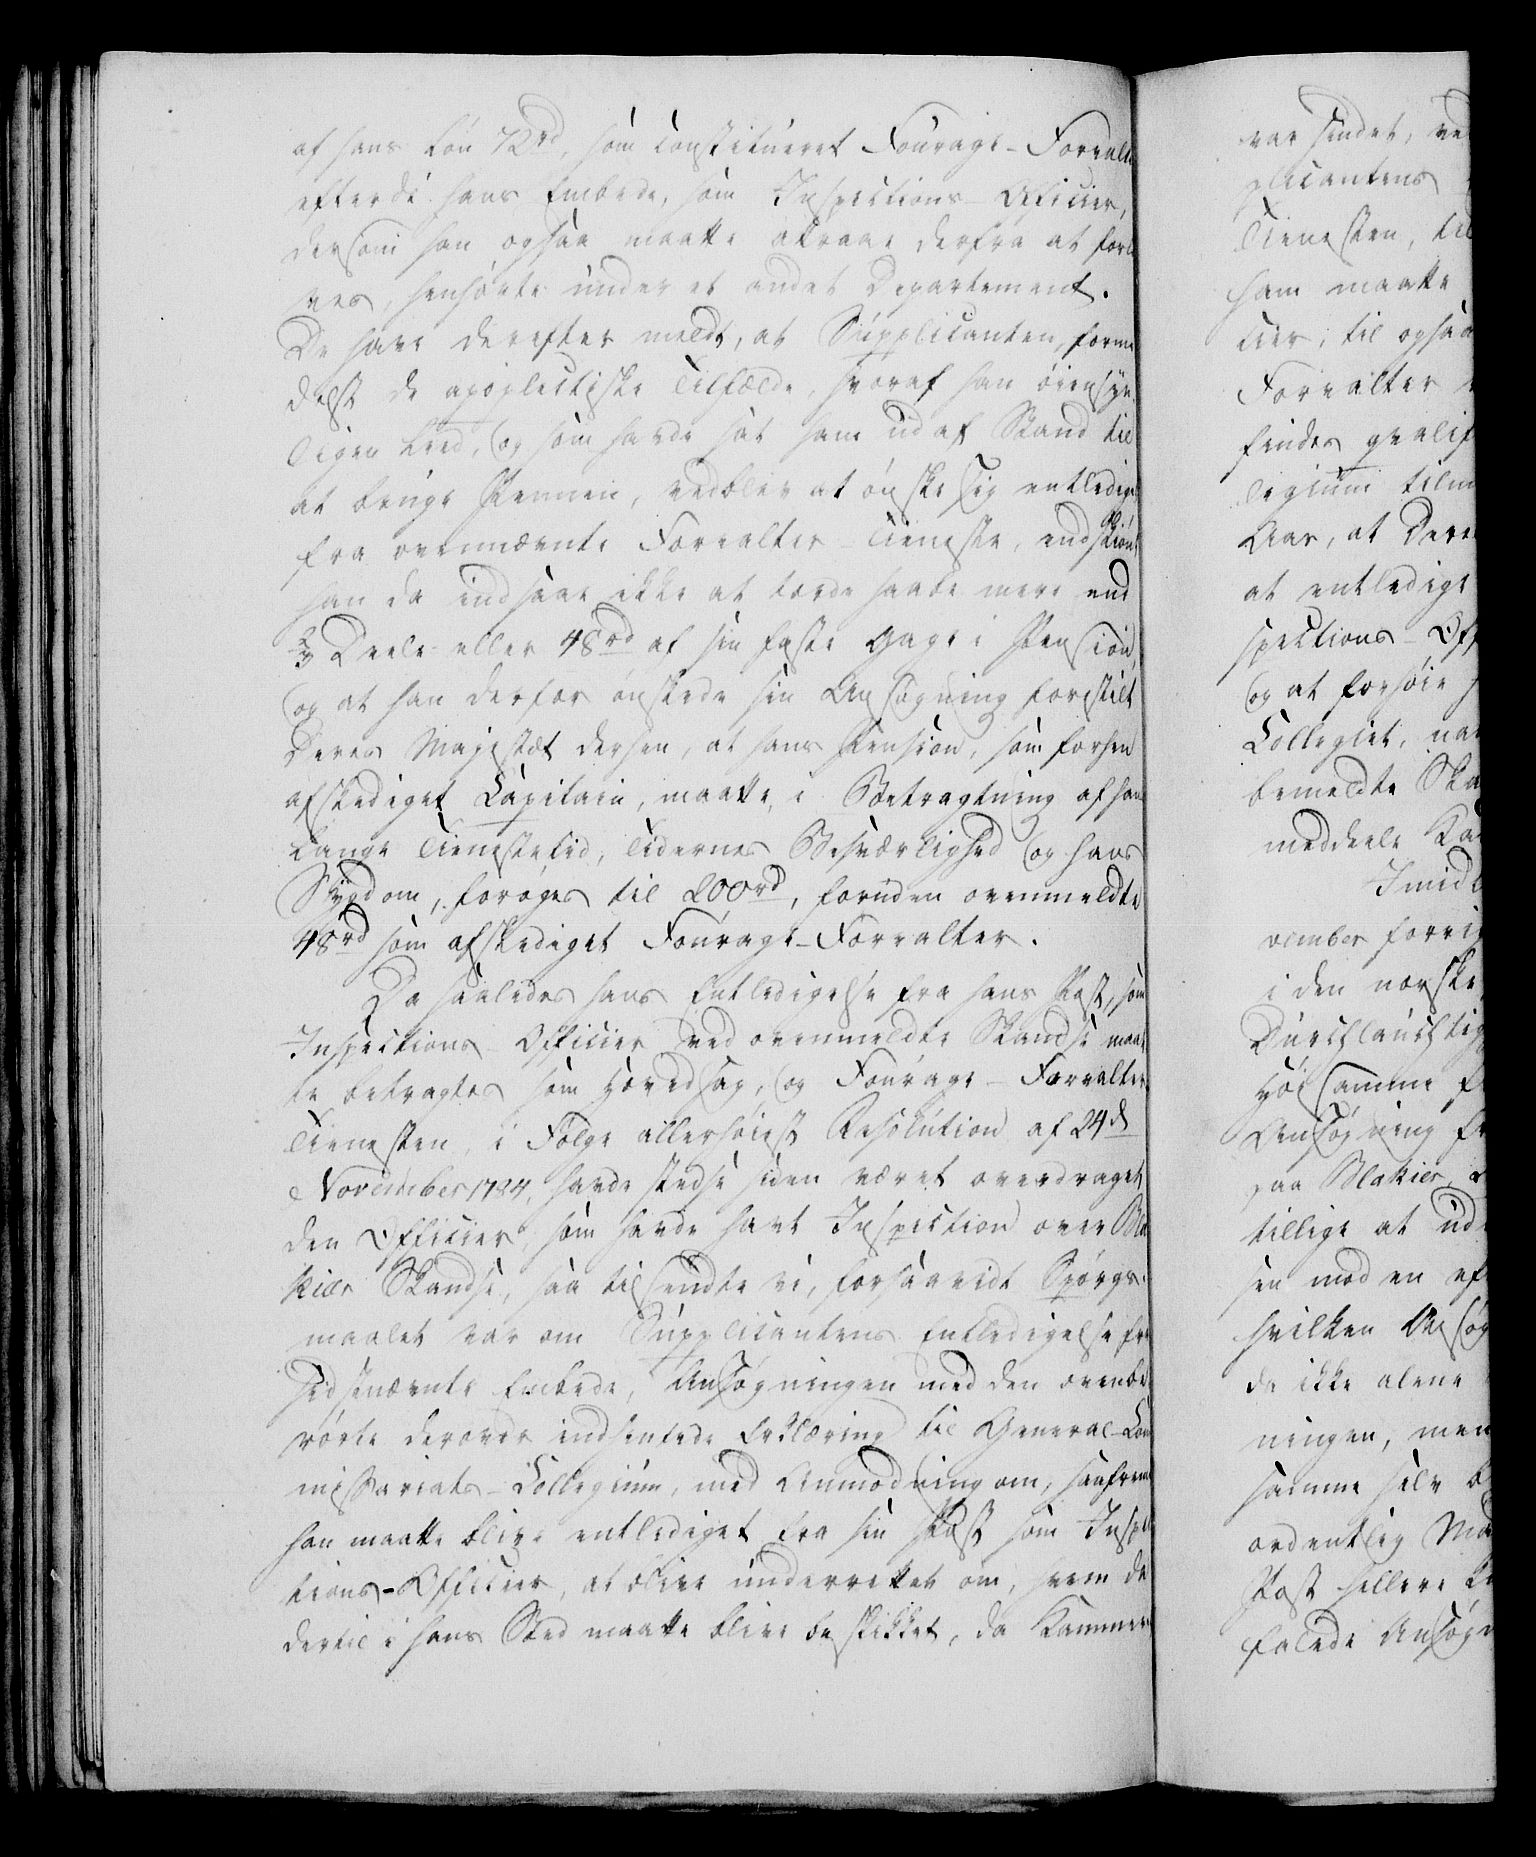 af hans Løn 72rd, som constitueret Fourage-Forvalt
efterdi hans Embede, som Inspections-Officier,
dersom han ogsaa maatte attraae derfra at for
nes, henhørte under et andet Departement.
De have derefter meldt, at Supplicanten, forme
delst de apoplectiske Tilfælde, hvoraf han øiensyn
ligen leed, og som havde sat ham ud af Stand til
at bruge Pennen, vedblev at ønske sig entlediget
fra ovennævnte Forvalter-Tieneste, endskiønt
han da indsaae ikke at torde haabe mere end
2/3 Deele eller 48rd af sin faste Gage i Pension,
og at han derfor ønskede sin Ansøgning forestilt
Deres Majestæt derhen, at hans Pension, som forhen
afskediget Capitain, maatte, i Betragtning af hans
lange Tienestetid, Tidernes Besværlighed og hans
Sygdom, forøges til 200rd, foruden ovenmeldte
48rd som afskediget Fourage-Forvalter.
Da saaledes hans Entledigelse fra hans Post, som
Inspections-Officier ved ovenmeldte Skandse maat
te betragtes som Hovedsag, og Fourage-Forvalter
Tienesten, i Følge allerhøiest Resolution af 24d
November 1784, havde stedse siden været overdraget
den Officier, som havde havt Inspection over Bla
kiær Skandse, saa tilsendte vi, forsaavidt Spørgs-
maalet var om Supplicantens Entledigelse fra
sidstnævnte Embede, Ansøgningen med den ovenbe
rørte derover indhentede Erklæring til General-Com
missariats-Collegium, med Anmodning om, saafremt
han maatte blive entlediget fra sin Post som Inspec
tions-Officier, at blive underrettet om, hvem da
dertil i hans Sted maatte blive beskikket, da Kammer
var sindet, ved
plicantens
Tienesten, til
ham maatte
cier, til ogsaa
Forvalter
findes qvalif
legium tilm
Aar, at Dere
at entledige
spections-Off
og at forhøie
Collegiet, na
bemeldte Ska
meddeele Ka
Imidl
vember forrig
i den norske
Durchlauchtig
Høisamme f
Ansøgning fr
paa Blakier,
tillige at ud
sen mod en ef
hvilken Ansøg
da ikke alene
ningen, men
samme selv b
ordentlig Maa
Post hellere
falede Ansøgn